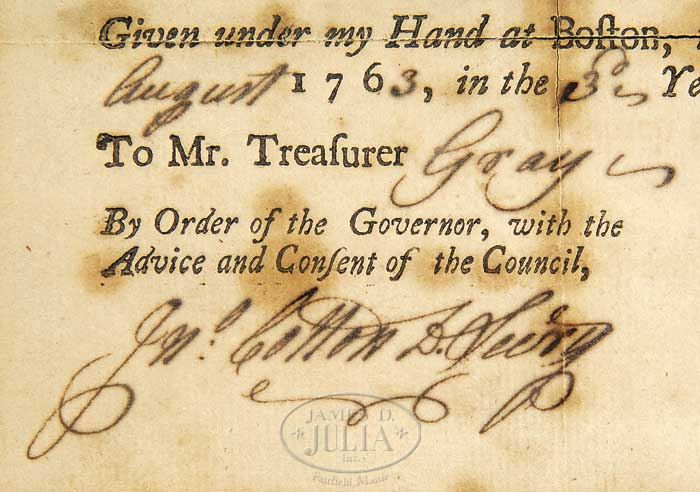 Given under my Hand at Boſton,
August 1763, in the 3d Ye
To Mr. Treaſurer Gray
By Order of the Governor, with the
Advice and Conſent of the Council,
Jno. Cotton D. Secry
JAMES D.
JULIA
Inc.
Fairfield, Maine